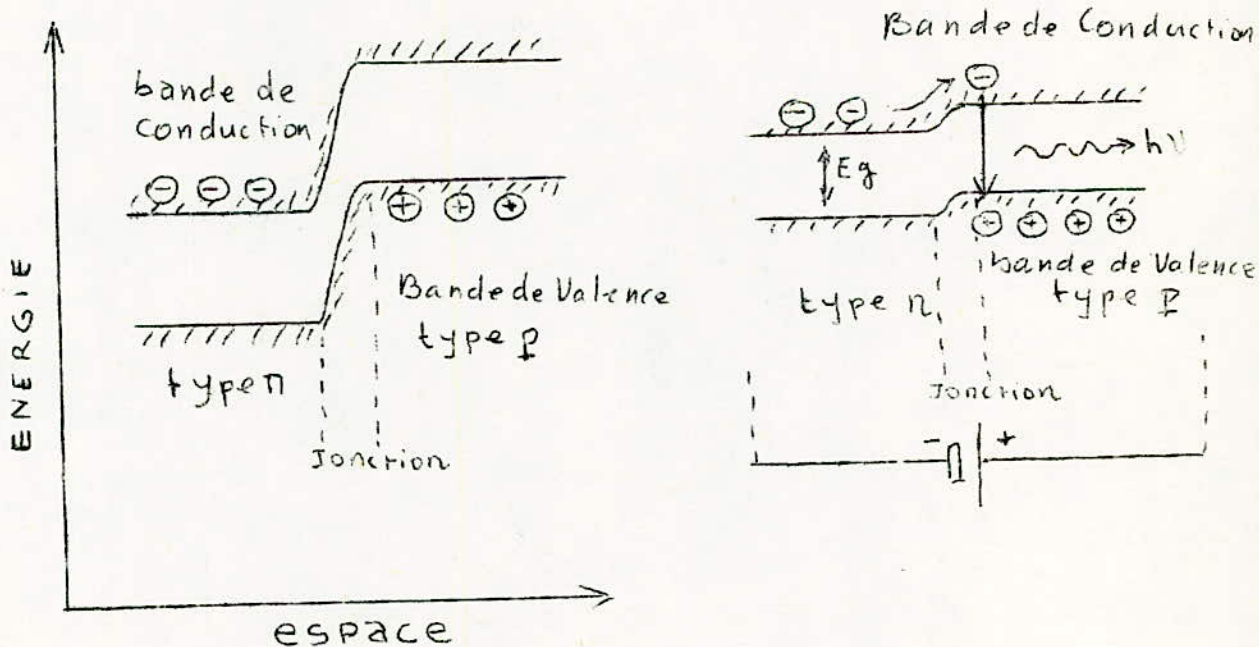 ENERGIE
bande de
Conduction
Bande de Valence
type p
type n
Jonction
espace
Bande de Conduction
Eg
hν
bande de Valence
type n
type p
Jonction
- +